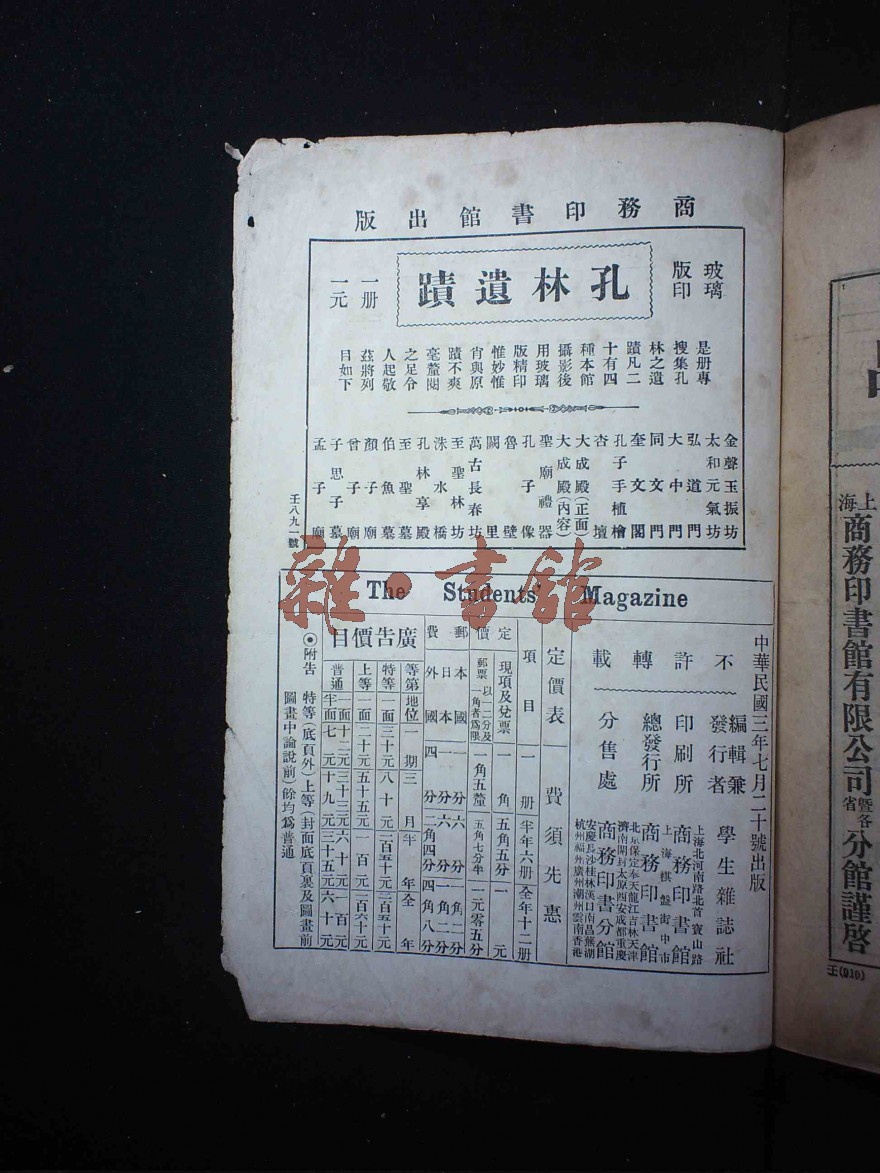 商務印書館出版
玻璃版印
孔林遺蹟
一册
一元
是册專
搜集孔
林之遺
蹟凡二
十有四
種本館
攝影後
用玻璃
版精印
惟妙惟
肖與原
蹟不爽
毫釐閱
之足令
人起敬
茲將列
目如下
金聲玉振坊
太和元氣坊
弘道門
大中門
同文門
奎文閣
孔子手植檜
杏壇
大成殿(正面)
大成殿(內容)
聖廟禮器
孔子像
魯壁
闕里
萬古長春坊
至聖林坊
洙水橋
孔林享殿
至聖墓
伯魚墓
顏子廟
曾子廟
子思子墓
孟子廟
壬八九一號
The Students' Magazine
中華民國三年七月二十號出版
不許轉載
編輯兼發行者 學生雜誌社
印刷所 上海北河南路北首寶山路 商務印書館
總發行所 上海棋盤街中市 商務印書館
分售處 商務印書分館
北京保定奉天龍江吉林天津
濟南開封太原西安成都重慶
安慶長沙桂林漢口南昌蕪湖
杭州福州廣州潮州雲南香港
定價表 費須先惠
項目 一册 半年六册 全年十二册
定價 現項及兌票 一角 五角五分 一元
郵票以一二分及一角者為限 一角五釐 五角七分半 一元零五分
郵費 本國 一分 六分 一角二分
日本 一分 六分 一角二分
外國 四分 二角四分 四角八分
廣告價目
等第 地位 一期 三月 半年 全年
特等 一面 三十元 八十元 一百五十元 二百五十元
上等 一面 二十元 五十五元 一百元 一百六十元
普通 一面 十二元 三十三元 六十元 一百元
半面 七元 十九元 三十五元 六十元
◉附告 特等(底頁外)上等(封面底頁裏及圖畫前
圖畫中論說前)餘均為普通
雜·書館
上海商務印書館有限公司暨各省分館謹啓
王(910)